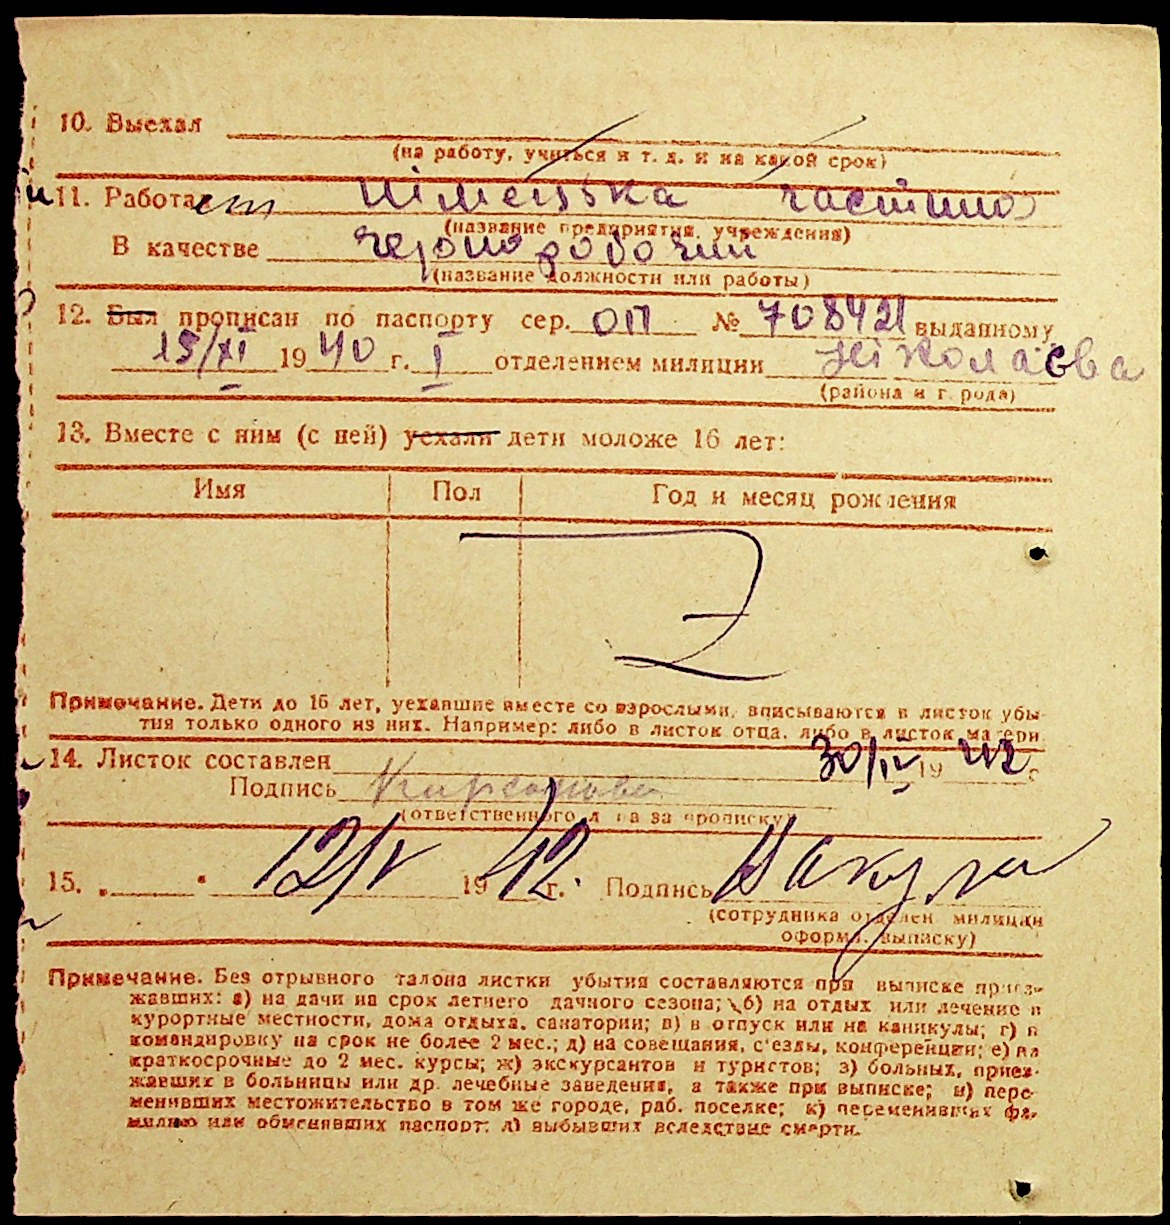 10. Выехал
(на работу, учиться и т. д. и на какой срок)
11. Работает німецька частина
(название предприятия, учреждения)
В качестве чорноробочий
(название должности или работы)
12. Был прописан по паспорту сер. ОП № 708421 выданному
15/XI 1940 г. I отделением милиции Ніколаєва
(района и г. рода)
13. Вместе с ним (с ней) уехали дети моложе 16 лет:
Имя Пол Год и месяц рождения
Z
Примечание. Дети до 16 лет, уехавшие вместе со взрослыми, вписываются в листок убы-
тия только одного из них. Например: либо в листок отца, либо в листок матери.
14. Листок составлен 30/IV 1942 г
Подпись
(ответственного л ца за прописку)
15. „ " 12/V 1942 г. Подпись Вакула
(сотрудника отделен милиции
оформ. выписку)
Примечание. Без отрывного талона листки убытия составляются при выписке приез-
жавших: а) на дачи на срок летнего дачного сезона; б) на отдых или лечение в
курортные местности, дома отдыха, санатории; в) в отпуск или на каникулы; г) в
командировку на срок не более 2 мес.; д) на совещания, с'езды, конференции; е) на
краткосрочные до 2 мес. курсы; ж) экскурсантов и туристов; з) больных, приез-
жавших в больницы или др. лечебные заведения, а также при выписке; и) пере-
менивших местожительство в том же городе, раб. поселке; к) переменивших фа-
милию или обменявших паспорт; л) выбывших вследствие смерти.